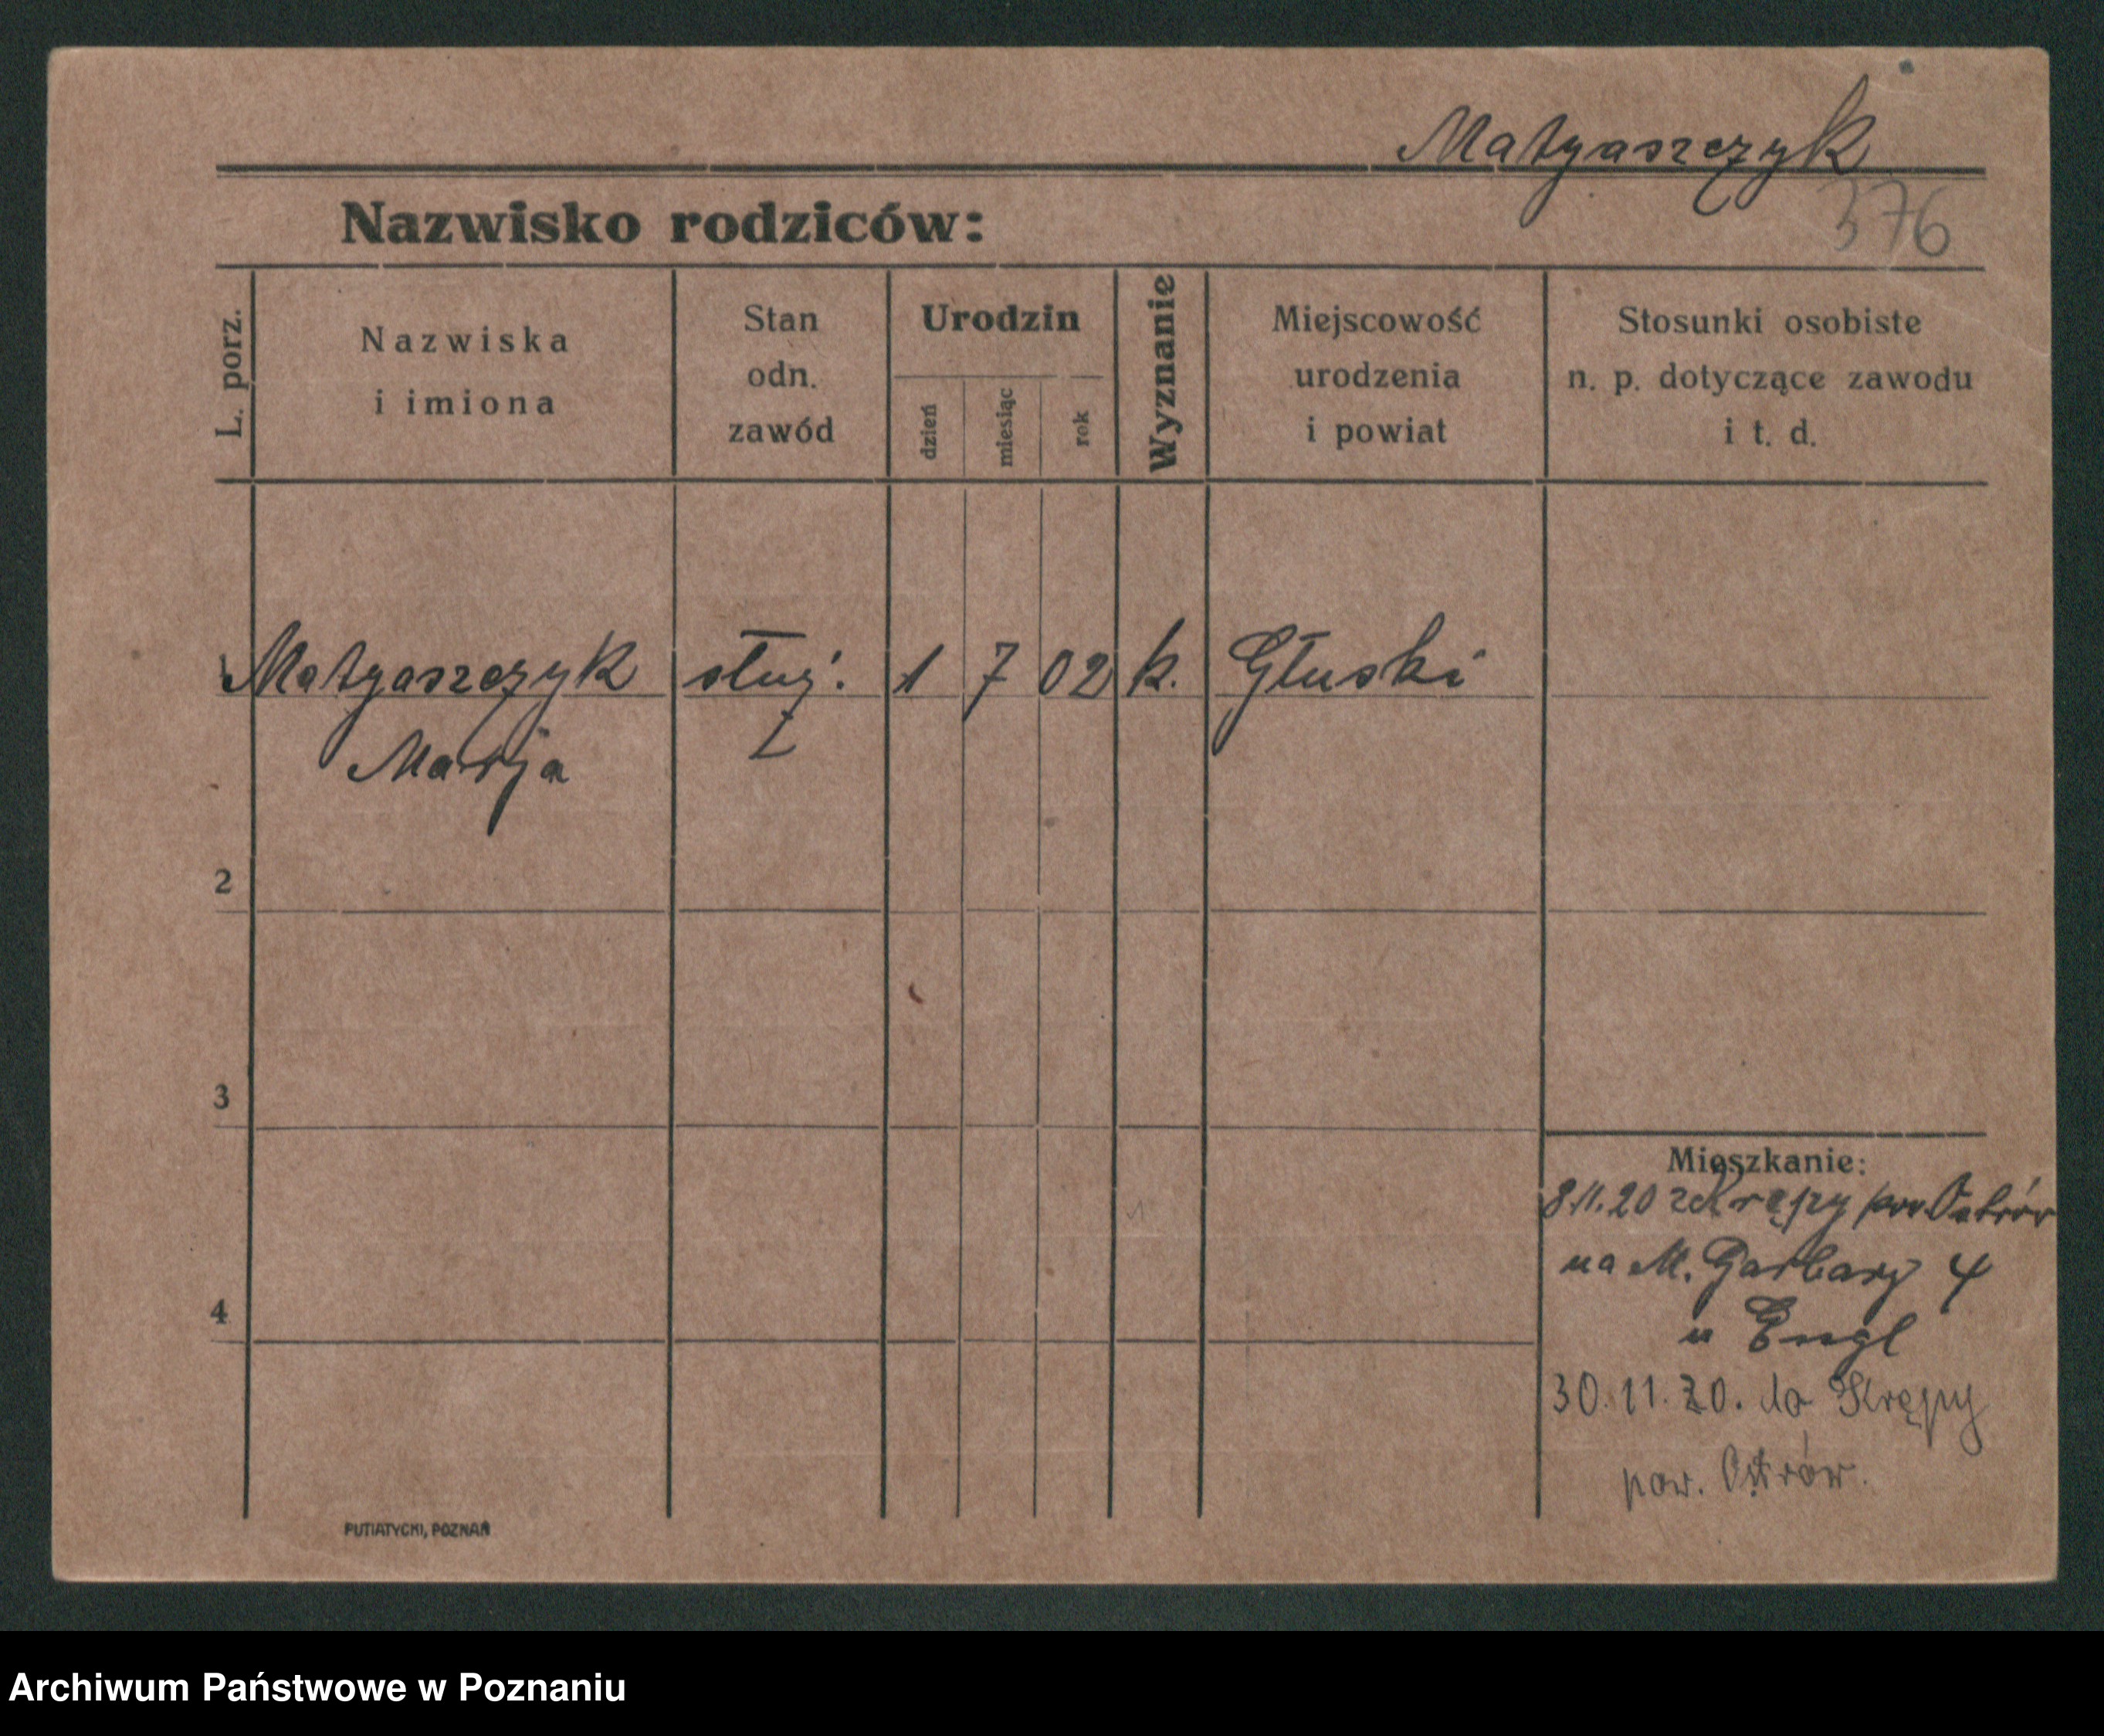 Matyaszczyk
376
Nazwisko rodziców:
L. porz.
Nazwiska
i imiona
Stan
odn.
zawód
Urodzin
dzień
miesiąc
rok
Wyznanie
Miejscowość
urodzenia
i powiat
Stosunki osobiste
n. p. dotyczące zawodu
i t. d.
1 Matyaszczyk służ. 1 7 02 k. Głuski
Marja
2
3
4
Mieszkanie:
8.11.20 z Krępy pow. Ostrów
na M. Garbary 4
u Engl
30.11.20. do Krępy
pow. Ostrów.
PUTIATYCKI, POZNAŃ
Archiwum Państwowe w Poznaniu